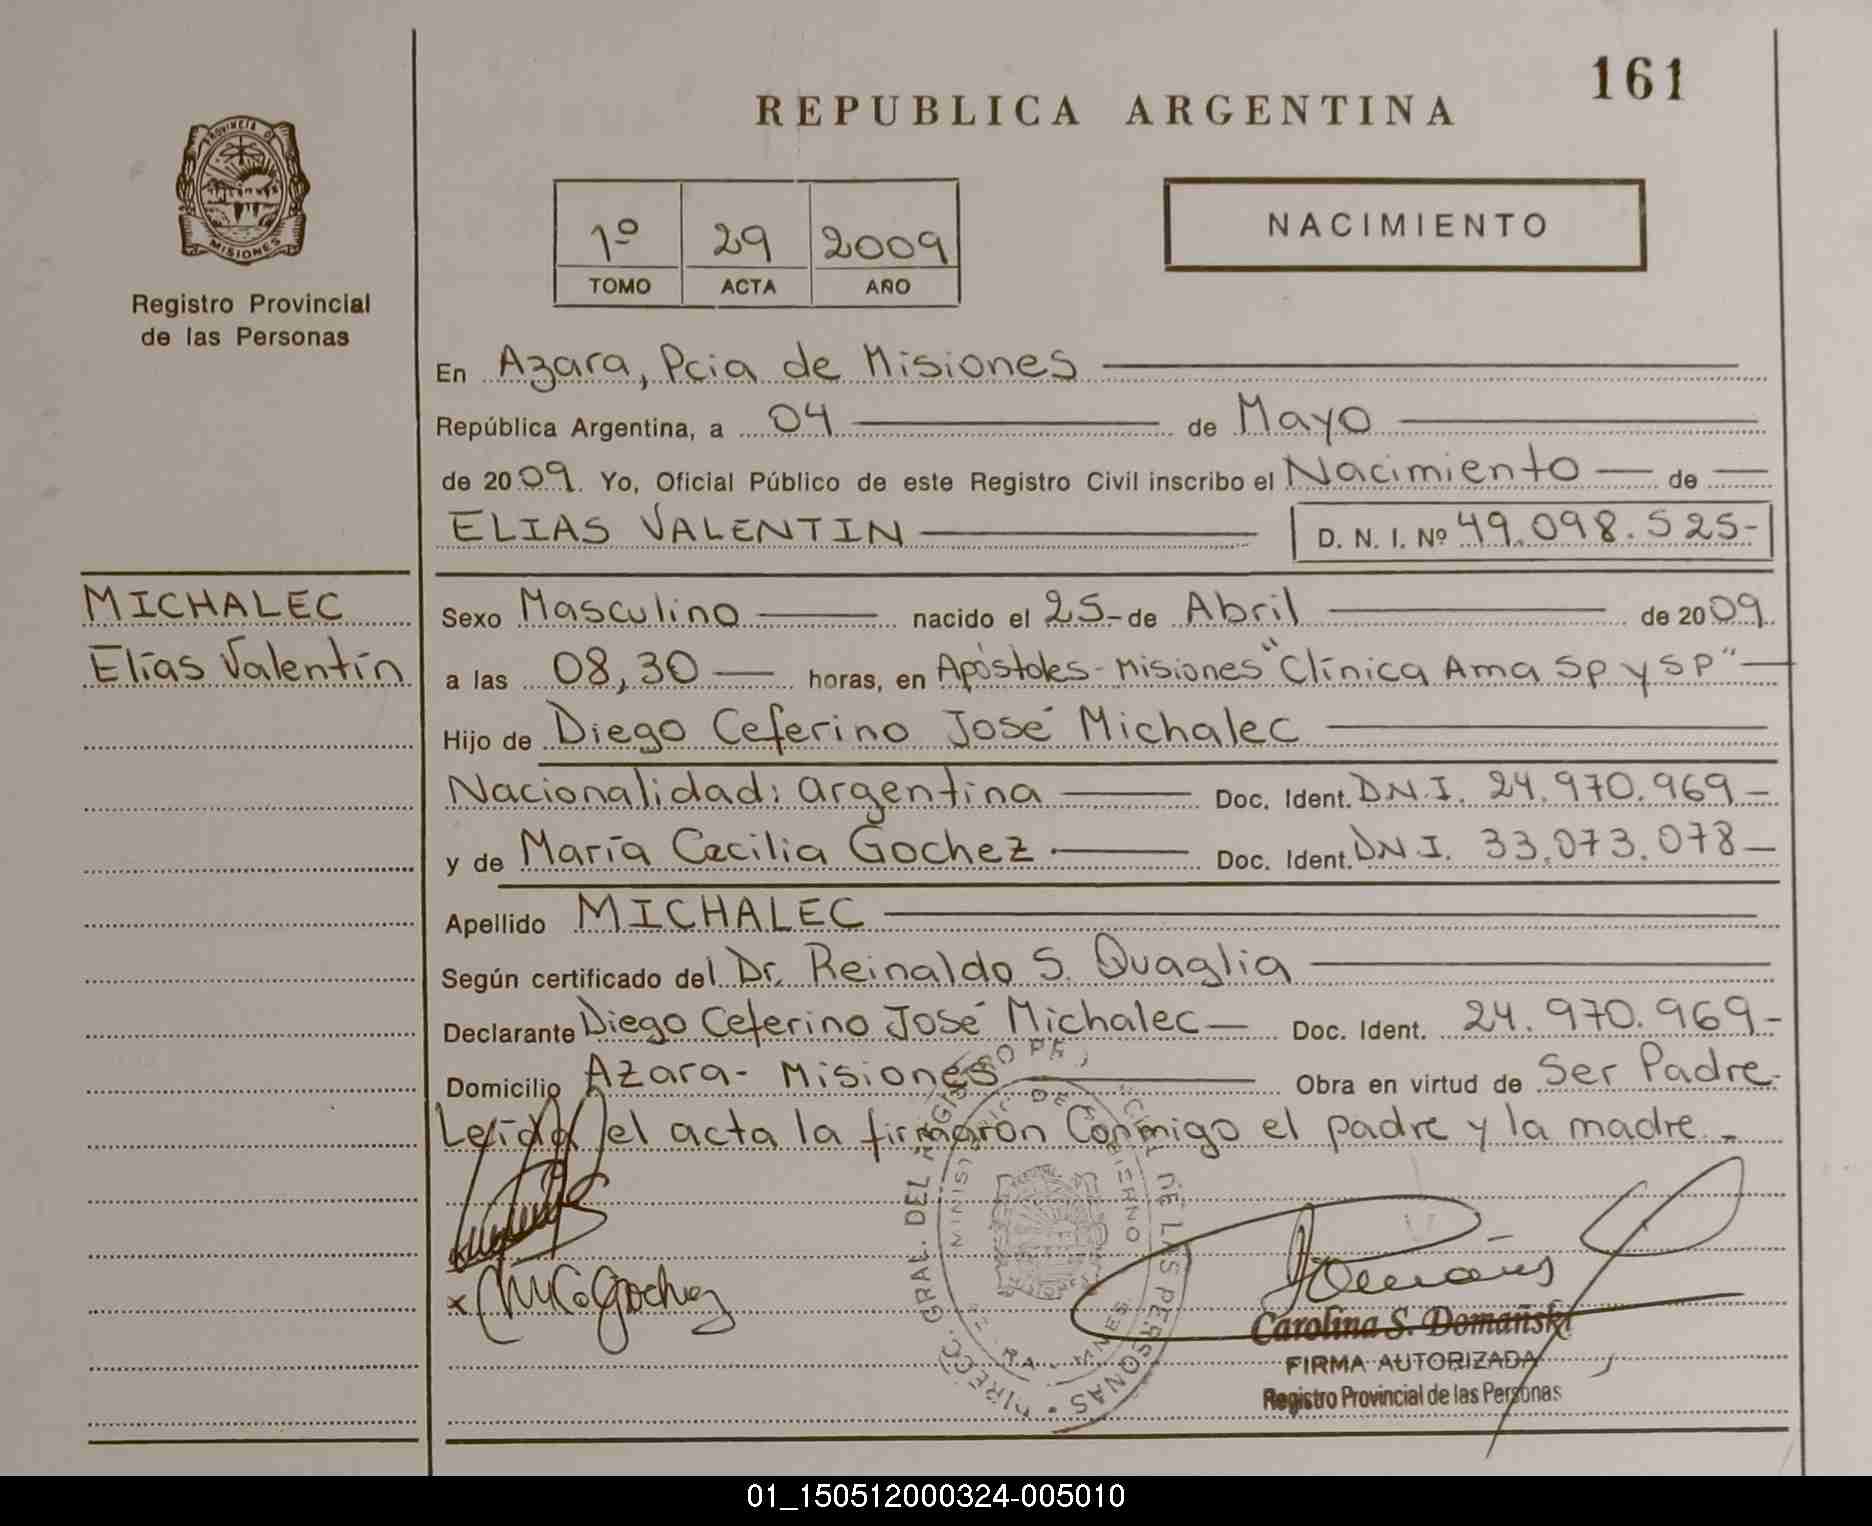 161
REPUBLICA ARGENTINA
PROVINCIA DE
MISIONES
Registro Provincial
de las Personas
1º 29 2009
TOMO ACTA AÑO
NACIMIENTO
En Azara, Pcia de Misiones
República Argentina, a 04 de Mayo
de 2009. Yo, Oficial Público de este Registro Civil inscribo el Nacimiento de
ELIAS VALENTIN D. N. I. Nº 49.098.525-
MICHALEC
Elías Valentín
Sexo Masculino nacido el 25- de Abril de 2009
a las 08,30 horas, en Apóstoles - Misiones "Clínica Ama Sp y SP"
Hijo de Diego Ceferino José Michalec
Nacionalidad: argentina Doc. Ident. D.N.I. 24.970.969-
y de María Cecilia Gochez Doc. Ident. D.N.I. 33.073.078-
Apellido MICHALEC
Según certificado del Dr. Reinaldo S. Quaglia
Declarante Diego Ceferino José Michalec Doc. Ident. 24.970.969-
Domicilio Azara - Misiones Obra en virtud de Ser Padre.
Leída el acta la firmaron conmigo el padre y la madre.-
DIRECC. GRAL. DEL DE LAS PERSONAS
MINIST DE GOBIERNO
Carolina S. Domański
FIRMA AUTORIZADA
Registro Provincial de las Personas
01_150512000324-005010